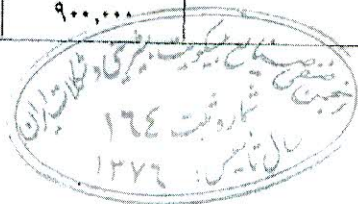 ۹۰۰,۰۰۰
انجمن صنفی صنایع بیسکویت، شیرینی و شکلات ایران
شماره ثبت ۱۶۴
سال تاسیس: ۱۳۷۶